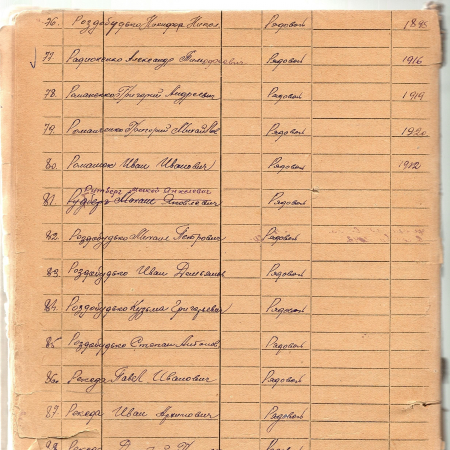 76. Роздобудько Никифор Рядовой 1895
77. Радионенко Александр Рядовой 1916
78. Романенко Григорий Андреевич Рядовой 1919
79. Романченко Григорий Рядовой 1920
80. Ромашок Иван Иванович Рядовой
81. Яковлевич Рядовой
82. Роздобудько Михаил Петрович Рядовой
83. Роздобудько Иван Демьянов Рядовой
84. Роздобудько Кузьма Григорьевич Рядовой
85. Роздобудько Степан Антонов Рядовой
86. Рекеда Павел Иванович Рядовой
87. Рекеда Иван Рядовой
88. Рекеда